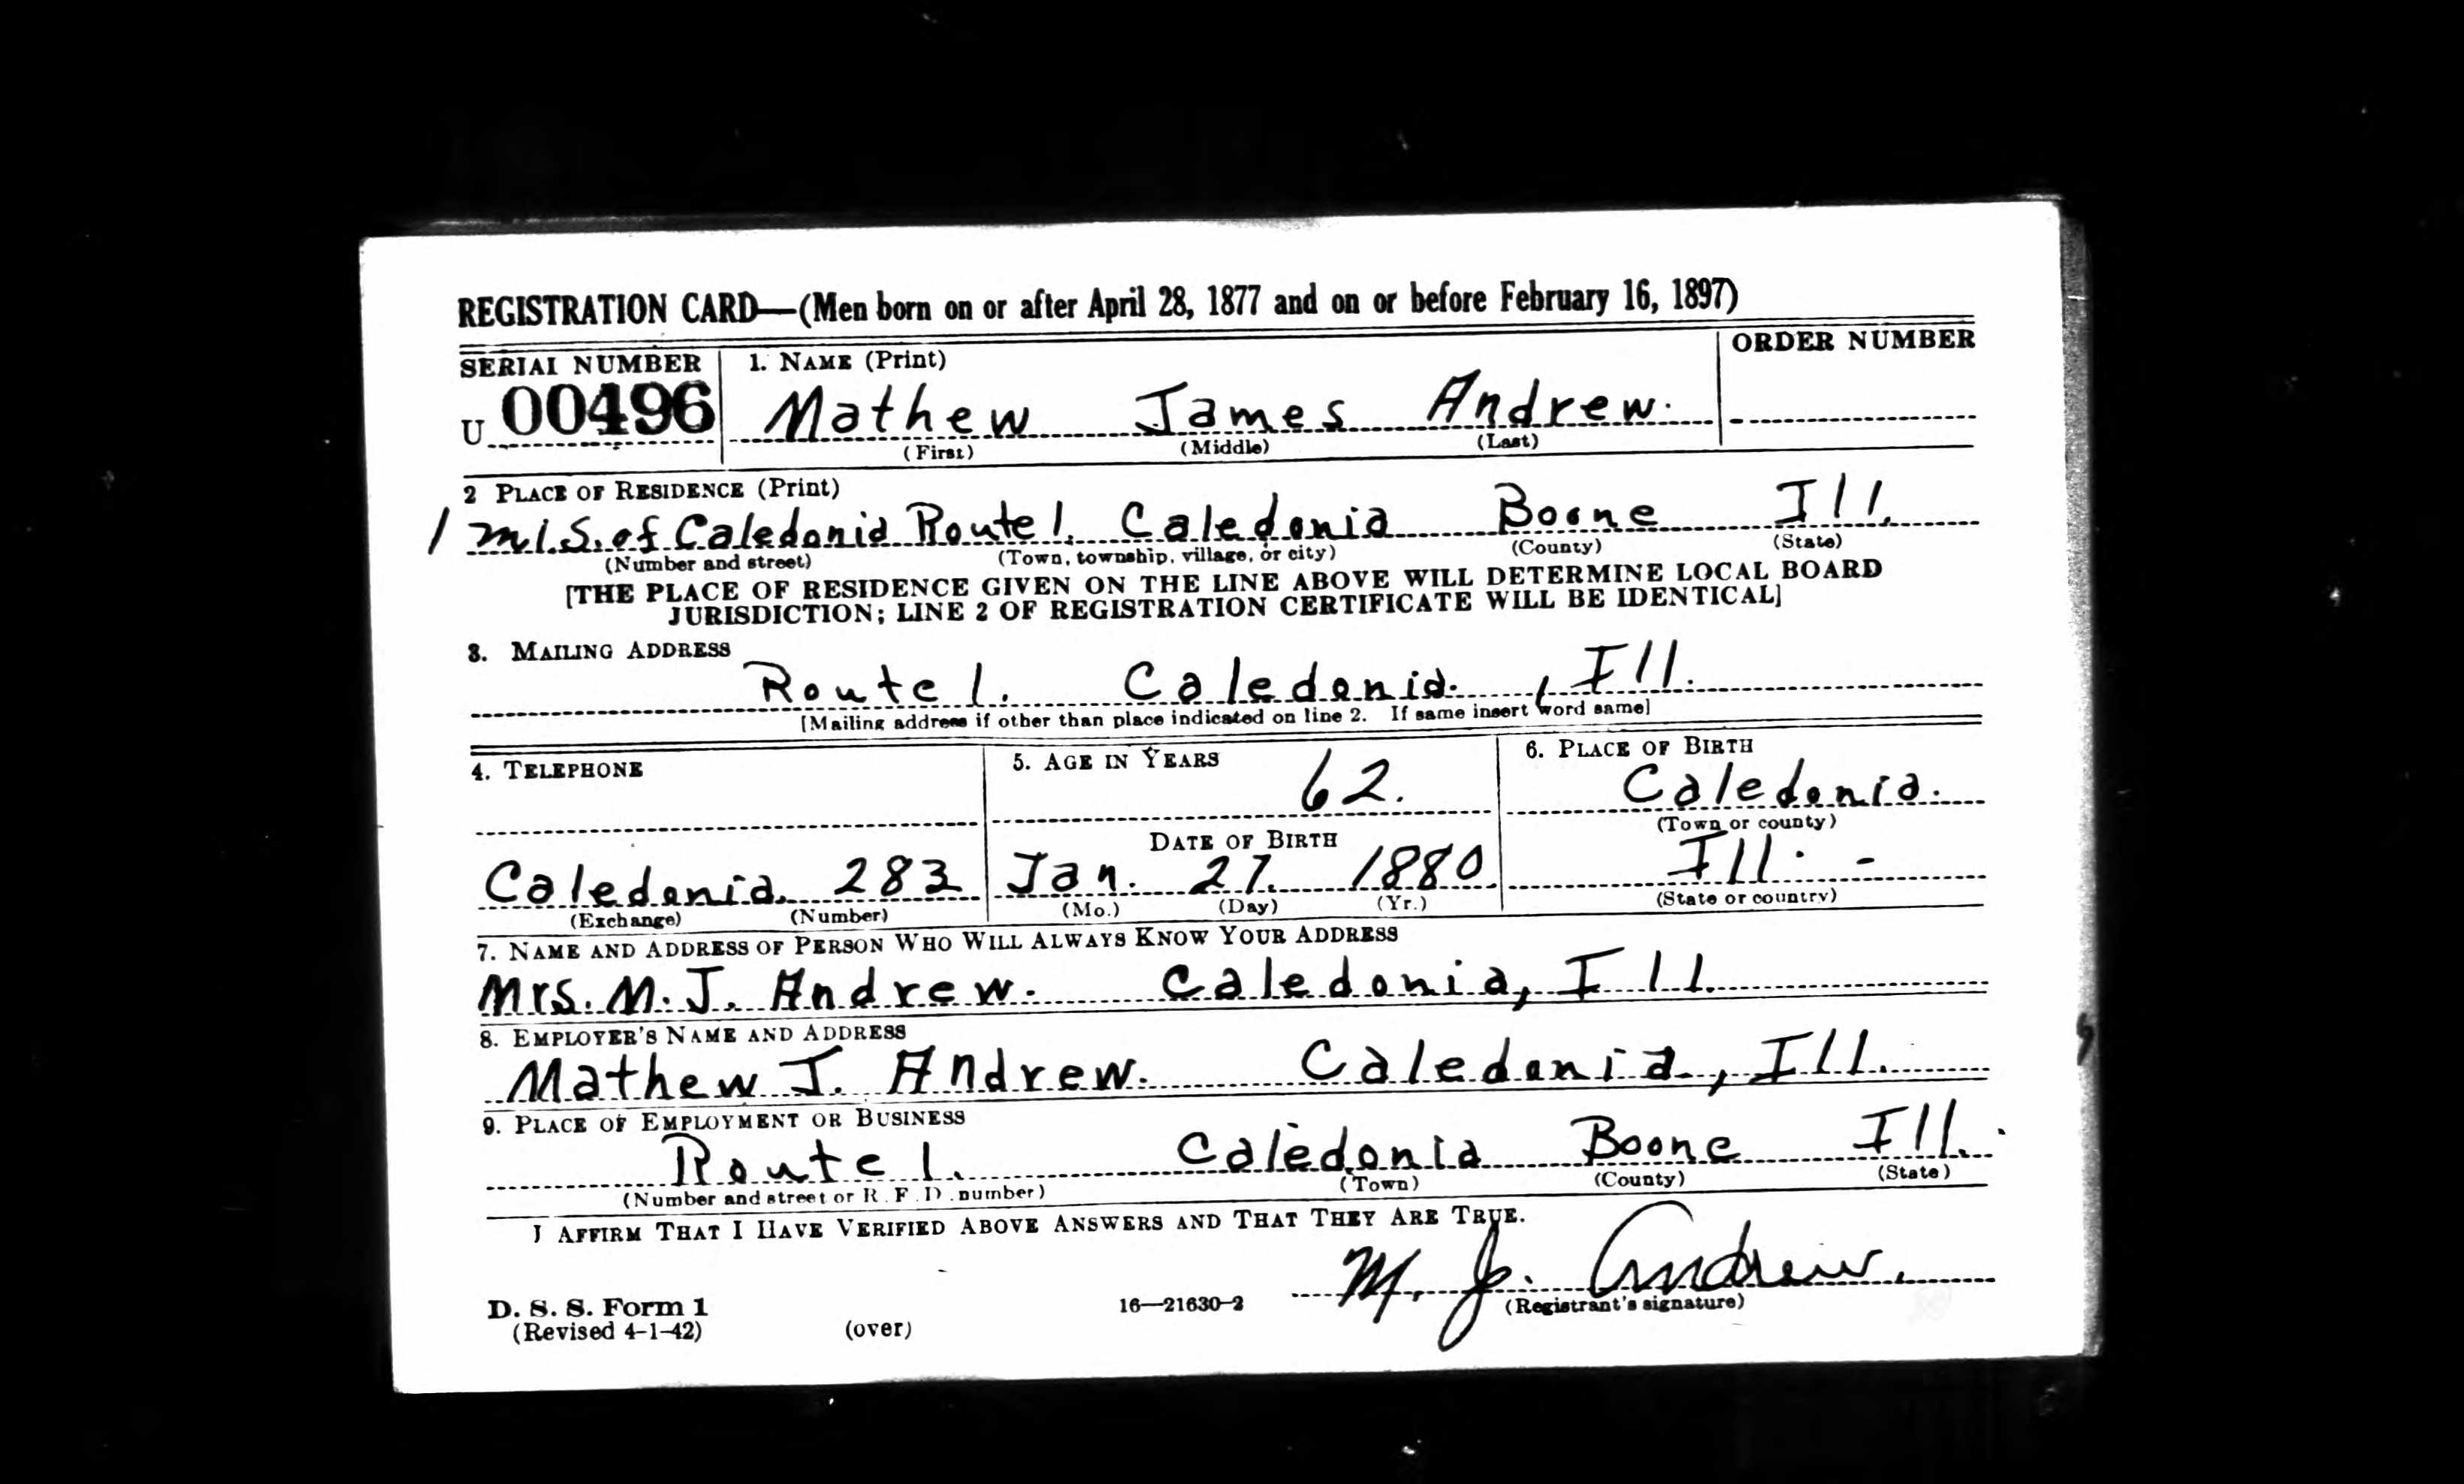 REGISTRATION CARD—(Men born on or after April 28, 1877 and on or before February 16, 1897)
SERIAL NUMBER 1. NAME (Print) ORDER NUMBER
U 00496 Mathew James Andrew.
(First) (Middle) (Last)
2 PLACE OF RESIDENCE (Print)
1 mi. S. of Caledonia Route 1. Caledonia Boone Ill.
(Number and street) (Town, township, village, or city) (County) (State)
[THE PLACE OF RESIDENCE GIVEN ON THE LINE ABOVE WILL DETERMINE LOCAL BOARD
JURISDICTION; LINE 2 OF REGISTRATION CERTIFICATE WILL BE IDENTICAL]
3. MAILING ADDRESS
Route 1. Caledonia. , Ill.
[Mailing address if other than place indicated on line 2. If same insert word same]
4. TELEPHONE 5. AGE IN YEARS 6. PLACE OF BIRTH
62. Caledonia.
(Town or county)
DATE OF BIRTH
Caledonia. 283 Jan. 27. 1880. Ill. -
(Exchange) (Number) (Mo.) (Day) (Yr.) (State or country)
7. NAME AND ADDRESS OF PERSON WHO WILL ALWAYS KNOW YOUR ADDRESS
Mrs. M. J. Andrew. Caledonia, Ill.
8. EMPLOYER'S NAME AND ADDRESS
Mathew J. Andrew. Caledonia, Ill.
9. PLACE OF EMPLOYMENT OR BUSINESS
Route 1. Caledonia Boone Ill.
(Number and street or R. F. D. number) (Town) (County) (State)
I AFFIRM THAT I HAVE VERIFIED ABOVE ANSWERS AND THAT THEY ARE TRUE.
M. J. Andrew.
D. S. S. Form 1 16—21630-2 (Registrant's signature)
(Revised 4-1-42) (over)